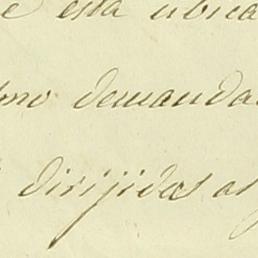 e esta ubica
mo demanda
dirijidas a